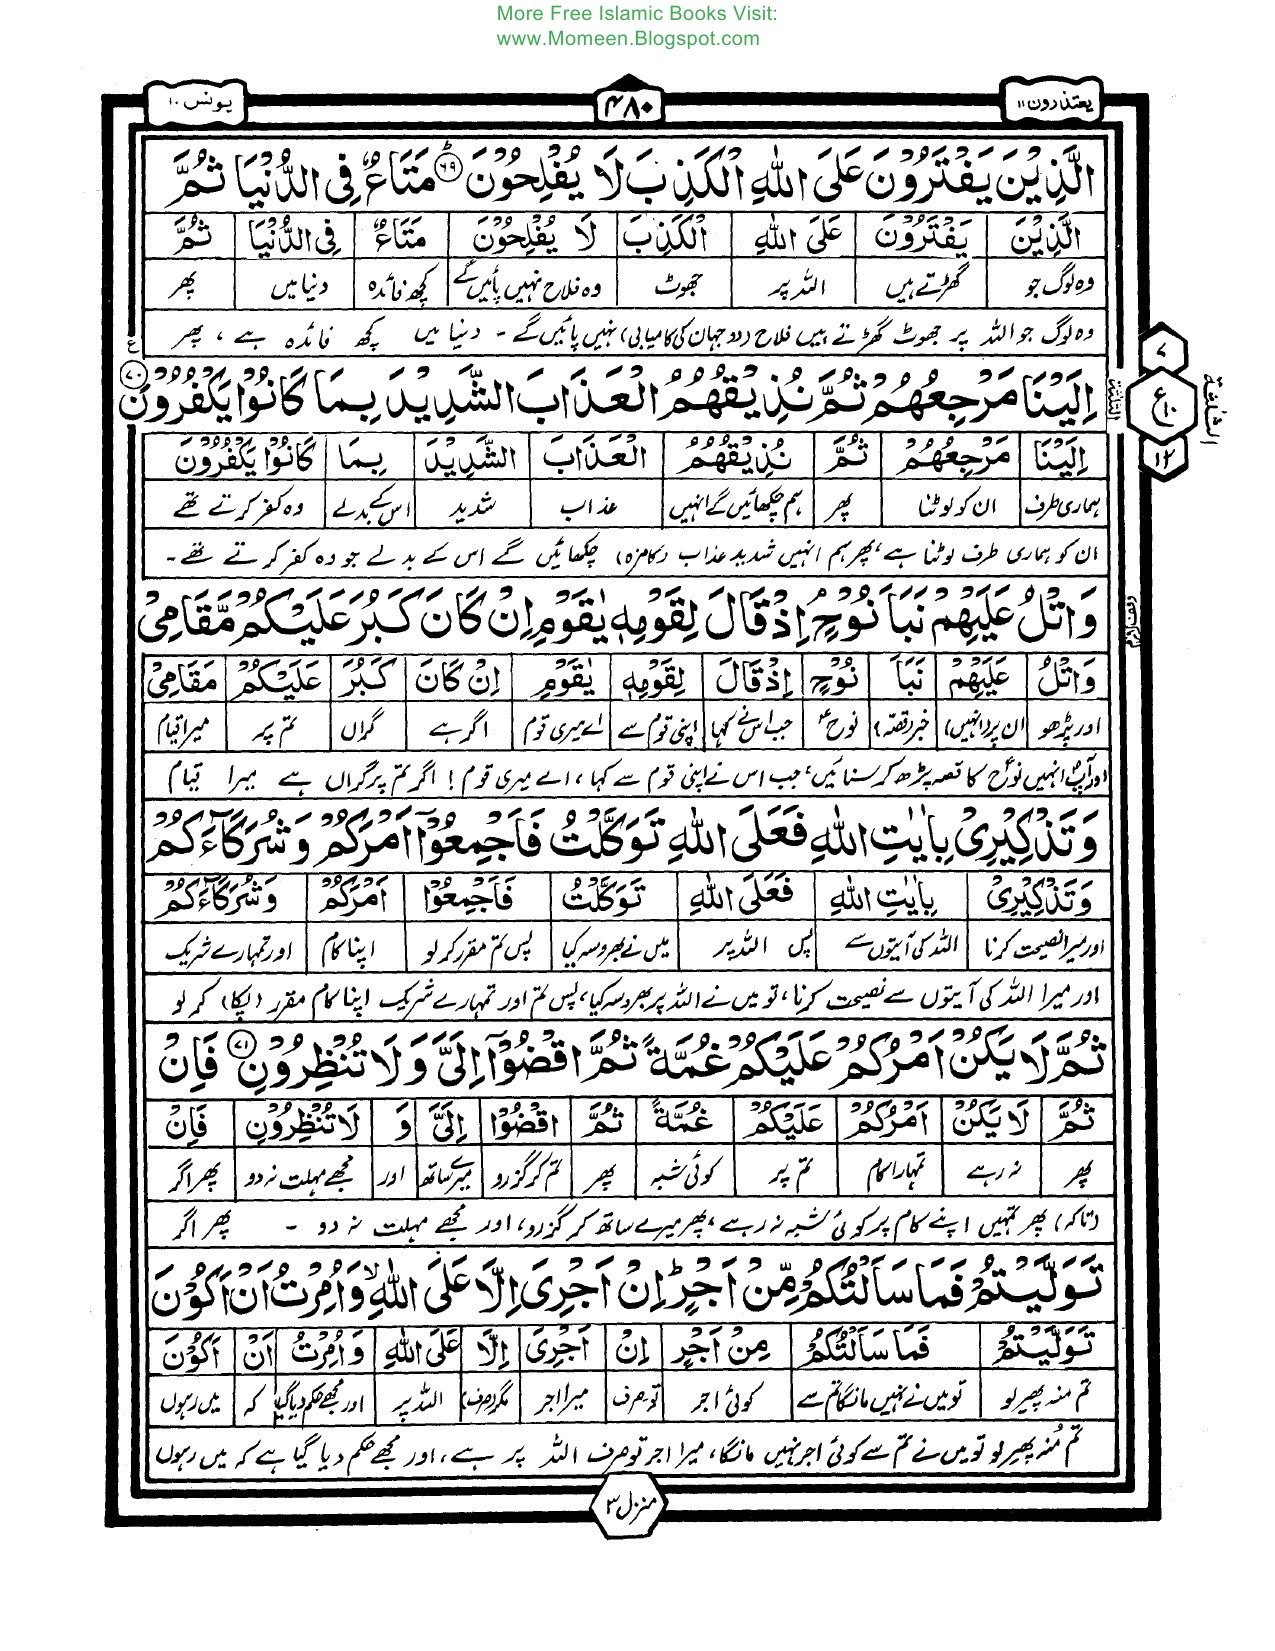 More Free Islamic Books Visit:
www.Momeen.Blogspot.com
یعتذرون ۱۱
۴۸۰
یونس ۱۰
الَّذِیْنَ یَفْتَرُوْنَ عَلَی اللّٰهِ الْكَذِبَ لَا یُفْلِحُوْنَ ﴿۶۹﴾ مَتَاعٌ فِی الدُّنْیَا ثُمَّ
الَّذِیْنَ یَفْتَرُوْنَ عَلَی اللّٰهِ الْكَذِبَ لَا یُفْلِحُوْنَ مَتَاعٌ فِی الدُّنْیَا ثُمَّ
وہ لوگ جو گھڑتے ہیں اللہ پر جھوٹ وہ فلاح نہیں پائیں گے کچھ فائدہ دنیا میں پھر
وہ لوگ جو اللہ پر جھوٹ گھڑتے ہیں فلاح (دو جہان کی کامیابی) نہیں پائیں گے ۔ دنیا میں کچھ فائدہ ہے ، پھر
اِلَیْنَا مَرْجِعُهُمْ ثُمَّ نُذِیْقُهُمُ الْعَذَابَ الشَّدِیْدَ بِمَا كَانُوْا یَكْفُرُوْنَ ﴿۷۰﴾
اِلَیْنَا مَرْجِعُهُمْ ثُمَّ نُذِیْقُهُمُ الْعَذَابَ الشَّدِیْدَ بِمَا كَانُوْا یَكْفُرُوْنَ
ہماری طرف ان کو لوٹنا پھر ہم چکھائیں گے انہیں عذاب شدید اس کے بدلے وہ کفر کرتے تھے
ان کو ہماری طرف لوٹنا ہے، پھر ہم انہیں شدید عذاب (کا مزہ) چکھائیں گے اس کے بدلے جو وہ کفر کرتے تھے ۔
وَاتْلُ عَلَیْهِمْ نَبَاَ نُوْحٍ ۘ اِذْ قَالَ لِقَوْمِهٖ یٰقَوْمِ اِنْ كَانَ كَبُرَ عَلَیْكُمْ مَّقَامِیْ
وَاتْلُ عَلَیْهِمْ نَبَاَ نُوْحٍ اِذْ قَالَ لِقَوْمِهٖ یٰقَوْمِ اِنْ كَانَ كَبُرَ عَلَیْكُمْ مَقَامِیْ
اور پڑھو ان پر (انہیں) خبر (قصہ) نوحؑ جب اس نے کہا اپنی قوم سے اے میری قوم اگر ہے گراں تم پر میرا قیام
اور آپؐ انہیں نوحؑ کا قصہ پڑھ کر سنائیں، جب اس نے اپنی قوم سے کہا ، اے میری قوم ! اگر تم پر گراں ہے میرا قیام
وَتَذْكِیْرِیْ بِاٰیٰتِ اللّٰهِ فَعَلَی اللّٰهِ تَوَكَّلْتُ فَاَجْمِعُوْۤا اَمْرَكُمْ وَشُرَكَآءَكُمْ
وَتَذْكِیْرِیْ بِاٰیٰتِ اللّٰهِ فَعَلَی اللّٰهِ تَوَكَّلْتُ فَاَجْمِعُوْۤا اَمْرَكُمْ وَشُرَكَآءَكُمْ
اور میرا نصیحت کرنا اللہ کی آیتوں سے پس اللہ پر میں نے بھروسہ کیا پس تم مقرر کر لو اپنا کام اور تمہارے شریک
اور میرا اللہ کی آیتوں سے نصیحت کرنا ، تو میں نے اللہ پر بھروسہ کیا، پس تم اور تمہارے شریک اپنا کام مقرر (پکا) کر لو
ثُمَّ لَا یَكُنْ اَمْرُكُمْ عَلَیْكُمْ غُمَّةً ثُمَّ اقْضُوْۤا اِلَیَّ وَلَا تُنْظِرُوْنِ ﴿۷۱﴾ فَاِنْ
ثُمَّ لَا یَكُنْ اَمْرُكُمْ عَلَیْكُمْ غُمَّةً ثُمَّ اقْضُوْا اِلَیَّ وَ لَا تُنْظِرُوْنِ فَاِنْ
پھر نہ رہے تمہارا کام تم پر کوئی شبہ پھر تم کر گزرو میرے ساتھ اور مجھے مہلت نہ دو پھر اگر
(تاکہ) پھر تمہیں اپنے کام پر کوئی شبہ نہ رہے ، پھر میرے ساتھ کر گزرو، اور مجھے مہلت نہ دو ۔ پھر اگر
تَوَلَّیْتُمْ فَمَا سَاَلْتُكُمْ مِّنْ اَجْرٍ ؕ اِنْ اَجْرِیَ اِلَّا عَلَی اللّٰهِ ۙ وَاُمِرْتُ اَنْ اَكُوْنَ
تَوَلَّیْتُمْ فَمَا سَاَلْتُكُمْ مِنْ اَجْرٍ اِنْ اَجْرِیَ اِلَّا عَلَی اللّٰهِ وَاُمِرْتُ اَنْ اَكُوْنَ
تم منہ پھیر لو تو میں نے نہیں مانگا تم سے کوئی اجر تو صرف میرا اجر مگر (صرف) اللہ پر اور مجھے حکم دیا گیا کہ میں رہوں
تم منہ پھیر لو تو میں نے تم سے کوئی اجر نہیں مانگا، میرا اجر تو صرف اللہ پر ہے، اور مجھے حکم دیا گیا ہے کہ میں رہوں
منزل ۳
ع
۷
ع ۱۰
۱۲